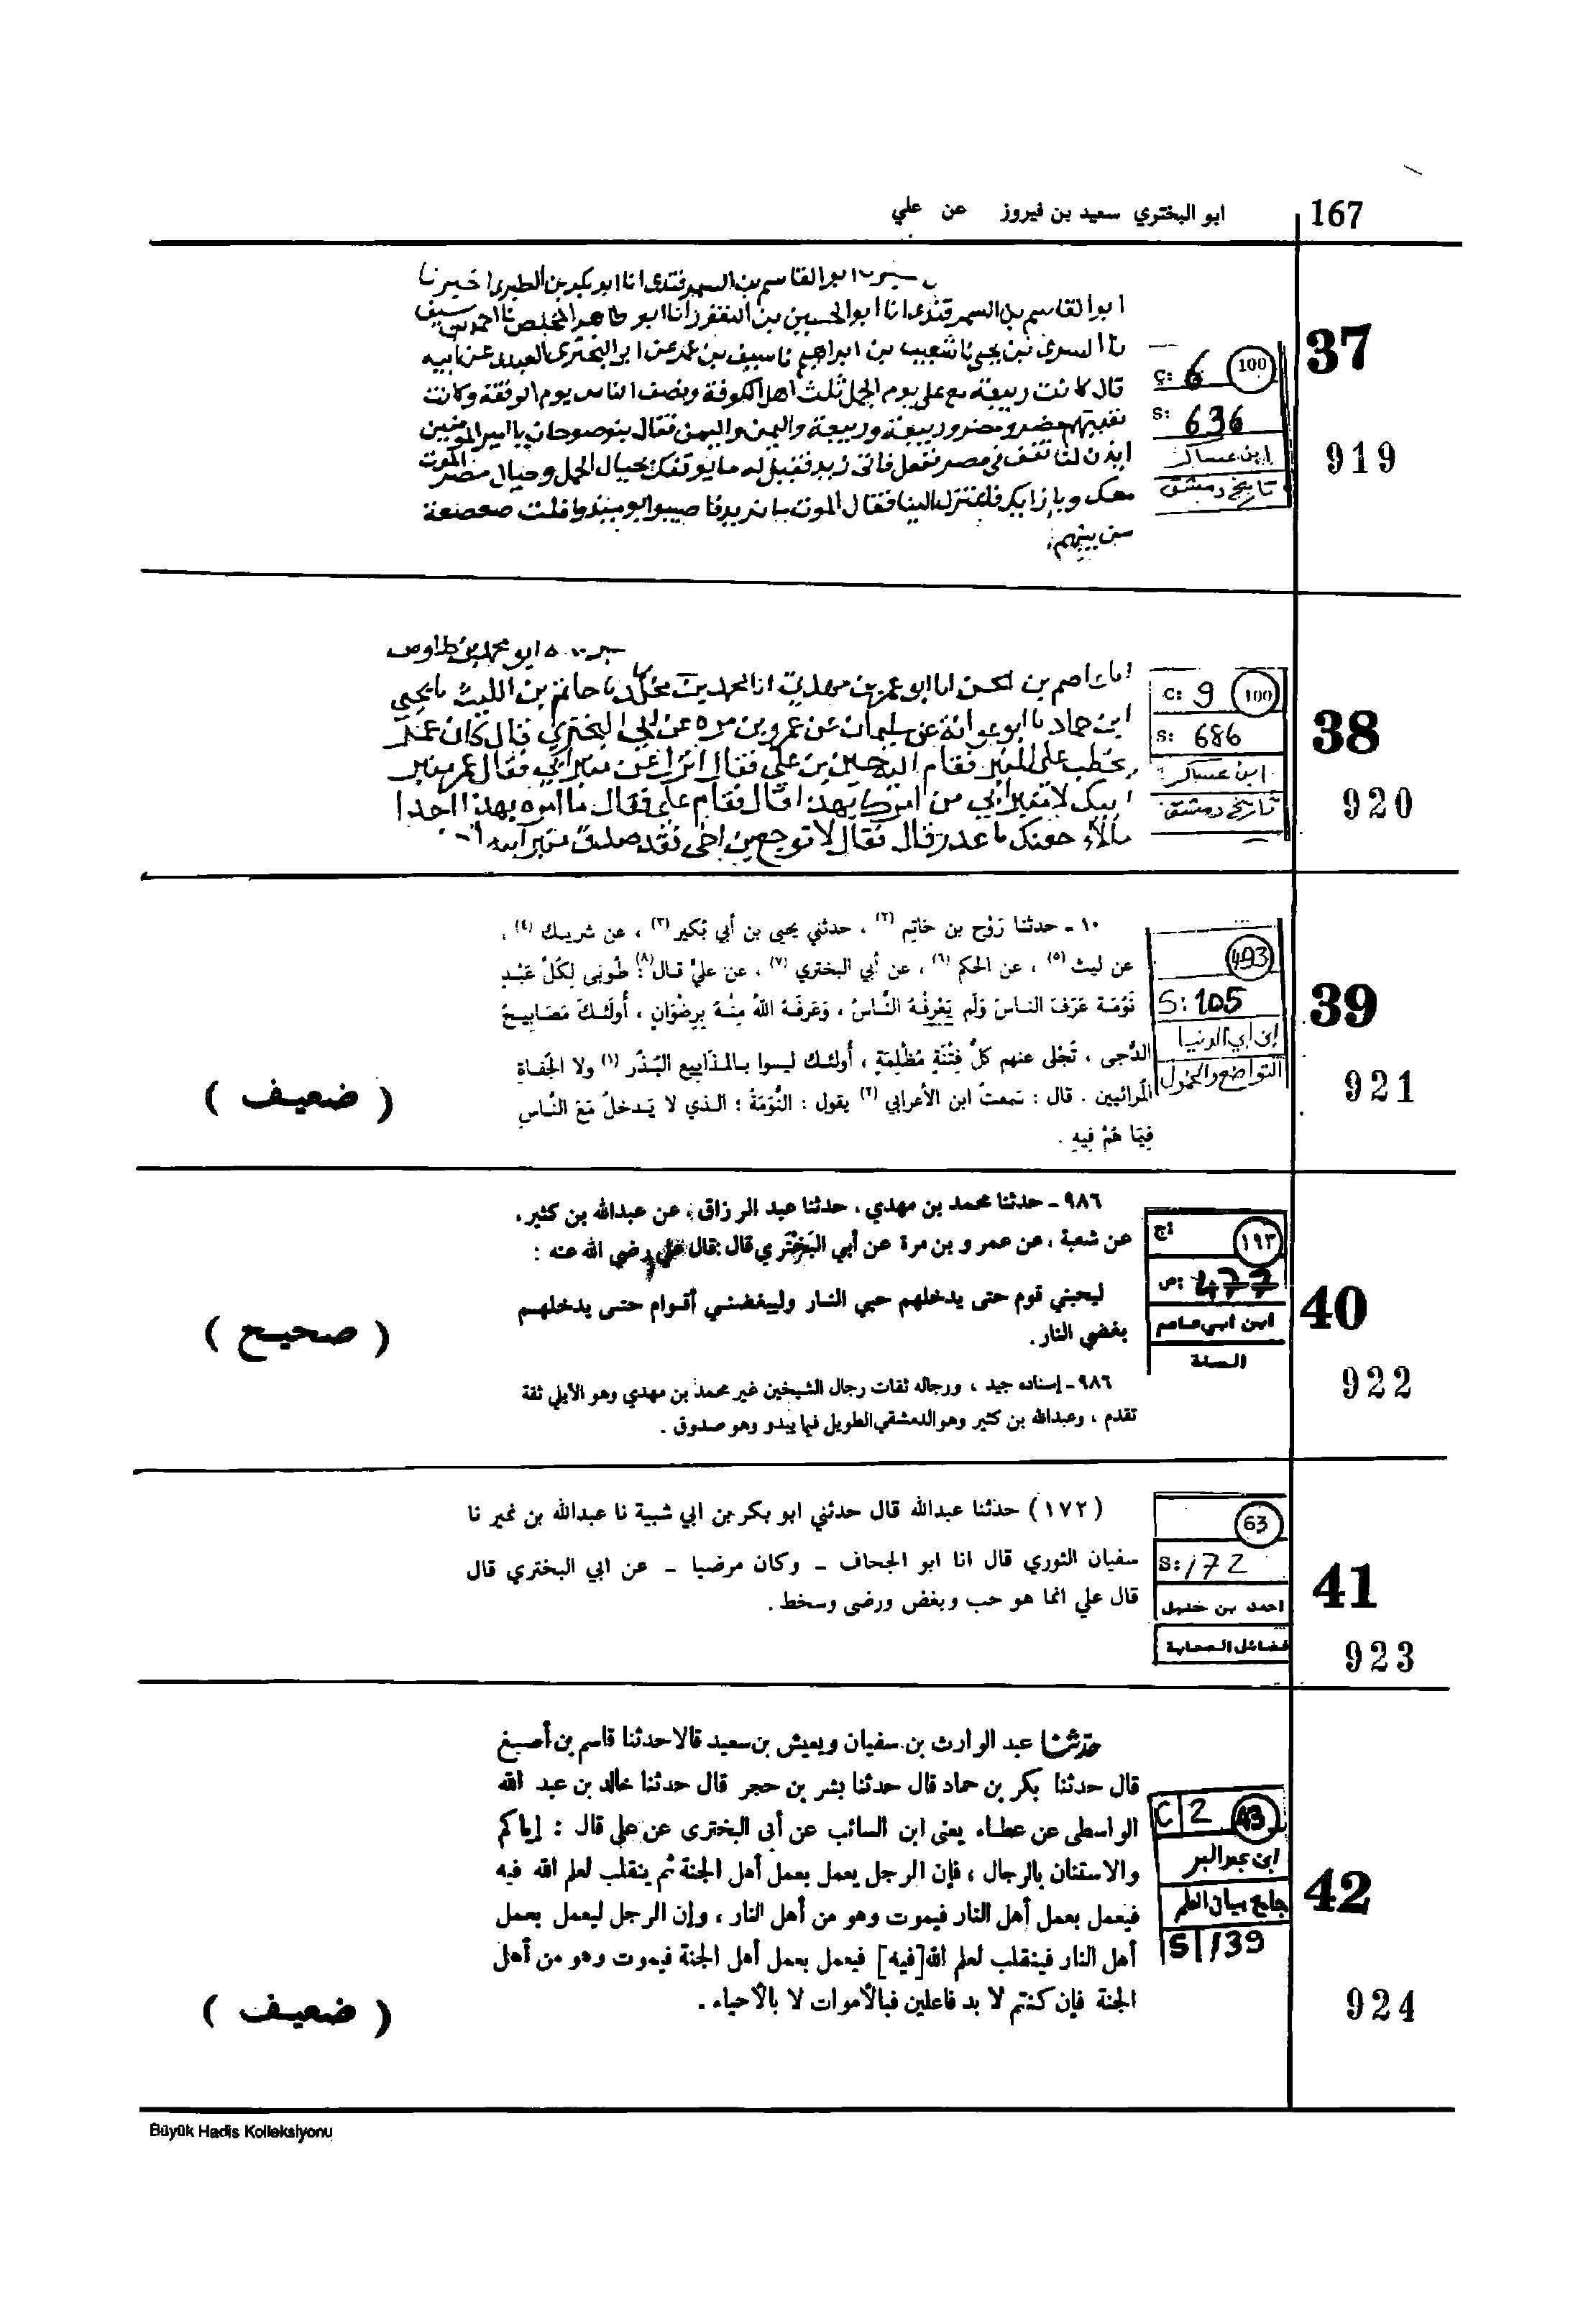 167
ابو البختري سعيد بن فيروز عن علي
37
919
ج: 6 (100)
S: 636
ابن عساكر
تاريخ دمشق
ابو القاسم بن السمرقندي انا ابو بكر بن الطبري اخبرنا
ابو القاسم بن السمرقندي انا ابو الحسين بن النقور انا ابو طاهر المخلص نا احمد بن سيف
نا السري بن يحيى نا شعيب بن ابراهيم نا سيف بن عمر عن ابي البختري العبدي عن ابيه
قال كانت ربيعة مع علي يوم الجمل ثلث اهل الكوفة ونصف الناس يوم الوقعة وكانت
تعبيتهم مضر ومضر وربيعة وربيعة واليمن واليمن فقال بنو صوحان يا امير المومنين
ايذن لنا نقف في مضر ففعل فاتى زيد فقيل له ما يوقفك بحيال الجمل وحيال مضر الموت
معك وبازايك فاعتزل الينا فقال الموت ما نريد فاصيبوا يومئذ وافلت صعصعة
من بينهم.
38
920
C: 9 (100)
S: 686
ابن عساكر
تاريخ دمشق
ابو محمد بن طاوس
انا عاصم بن الحسن انا ابو عمر بن مهدي انا محمد بن مخلد نا حاتم بن الليث نا يحيى
ابن حماد نا ابو عوانة عن سليمان عن عمرو بن مره عن ابي البختري قال كان عمر
يخطب على المنبر فقام اليه حسين بن علي فقال انزل عن منبر ابي فقال عمر منبر
ابيك لا منبر ابي من امرك بهذا قال فقام علي فقال ما امره بهذا احدا
اما لاوجعنك يا غدر قال فقال لا توجع بن اخي فقد صدق منبر ابيه
39
921
(493)
S: 105
ابن أبي الدنيا
التواضع والخمول
١٠ ـ حدثنا رَوْح بن حَاتِم (٢) ، حدثني يحيى بن أبي بُكير (٣) ، عن شريـك (٤) ،
عن ليث (٥) ، عن الحكم (٦) ، عن أبي البختري (٧) ، عن عليّ قـال (٨): طُوبى لِكُلّ عَبْـدٍ
نُوَمَـة عَرَفَ النـاسَ وَلَم يَعْرِفْـهُ النَّـاسُ ، وَعَرَفَـهُ اللهُ مِنْـهُ بِرِضْوَانٍ ، أُولَئـكَ مَصَابِيـحُ
الدُّجى ، تَجَلى عنهم كلُّ فِتْنَةٍ مُظْلِمَةٍ ، أُولئـك ليسوا بـالمـذاييع البُـذُر (١) ولا الجُفـاةِ
المُرائيين . قال : سَمعتُ ابن الأعرابي (٢) يقول : النُّوَمَةُ : الـذي لا يَـدخلُ مَعَ النَّـاسِ
فِيمَا هُمْ فِيهِ .
( ضعيـف )
40
922
ج: (١٩٣)
ص: ٤٧٧
ابن ابي عاصم
السنة
٩٨٦ ـ حدثنا محمد بن مهدي ، حدثنا عبد الرزاق ، عن عبدالله بن كثير ،
عن شعبة ، عن عمرو بن مرة عن أبي البَخْتَري قال : قال علي رضي الله عنه :
ليحبني قوم حتى يدخلهم حبي النـار وليبغضنـي أقـوام حتـى يدخلهـم
بغضي النار .
٩٨٦ ـ إسناده جيد ، ورجاله ثقات رجال الشيخين غير محمد بن مهدي وهو الأيلي ثقة
تقدم ، وعبدالله بن كثير وهو الدمشقي الطويل فيما يبدو وهو صدوق .
( صحيـح )
41
923
(63)
S: 172
احمد بن حنبل
فضائل الصحابة
( ١٧٢ ) حدثنا عبدالله قال حدثني ابو بكر بن ابي شيبة نا عبدالله بن نمير نا
سفيان الثوري قال انا ابو الجحاف ـ وكان مرضيا ـ عن ابي البختري قال
قال علي انما هو حب وبغض ورضى وسخط .
42
924
C 2 (43)
ابن عبد البر
جامع بيان العلم
S 139
حدثنا عبد الوارث بن سفيان ويعيش بن سعيد قالا حدثنا قاسم بن أصبغ
قال حدثنا بكر بن حماد قال حدثنا بشر بن حجر قال حدثنا خالد بن عبد الله
الواسطى عن عطاء يعنى ابن السائب عن أبى البخترى عن على قال : إياكم
والاستنان بالرجال ، فإن الرجل يعمل بعمل أهل الجنة ثم ينقلب لعلم الله فيه
فيعمل بعمل أهل النار فيموت وهو من أهل النار ، وإن الرجل ليعمل بعمل
أهل النار فينقلب لعلم الله [فيه] فيعمل بعمل أهل الجنة فيموت وهو من أهل
الجنة فإن كنتم لا بد فاعلين فبالأموات لا بالأحياء .
( ضعيـف )
Büyük Hadis Kolleksiyonu